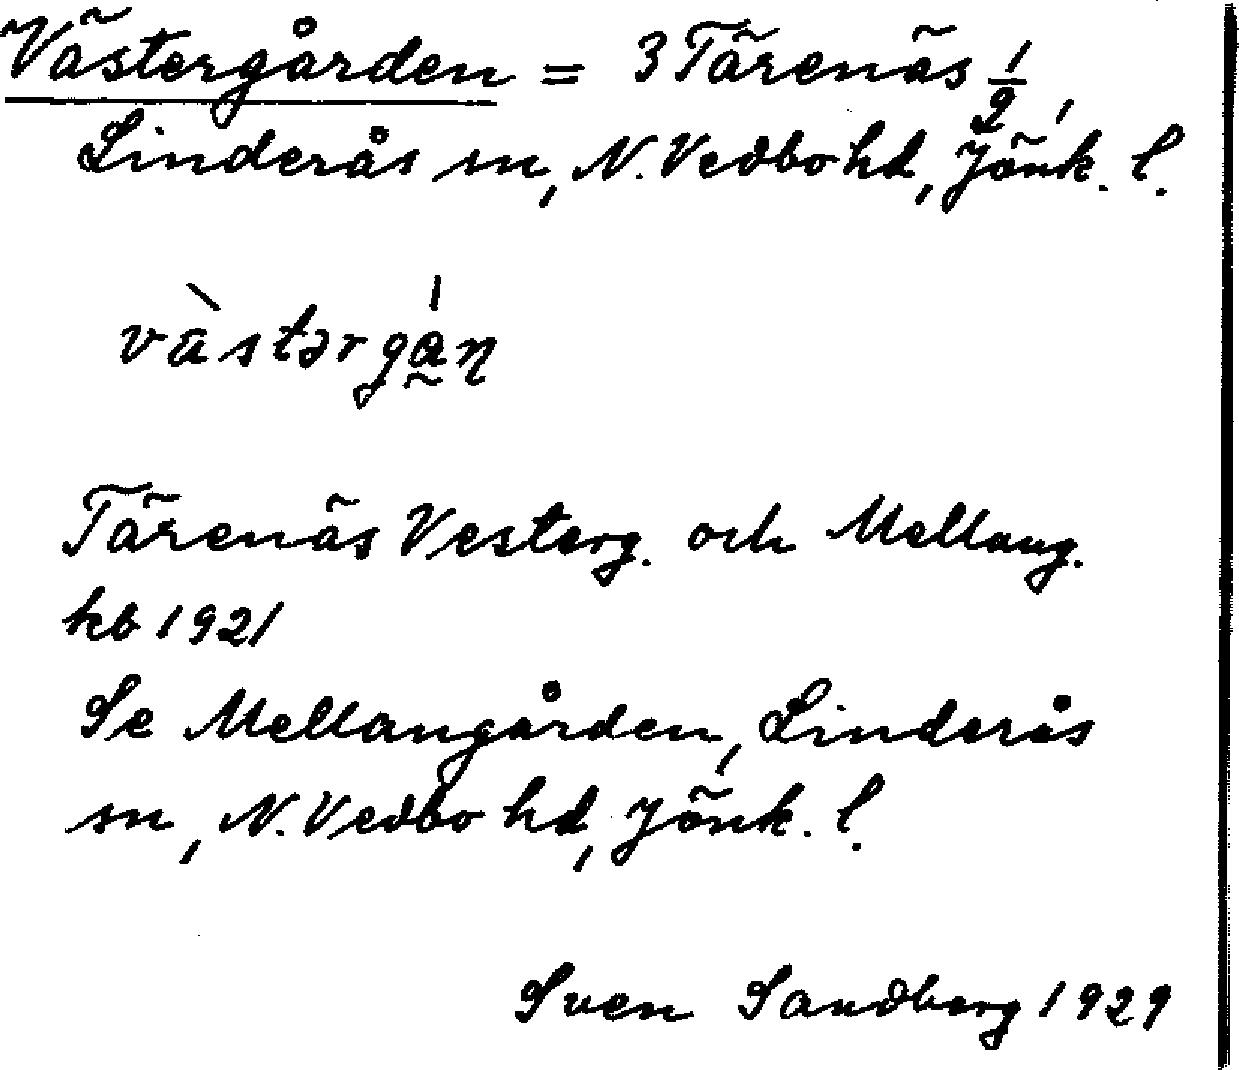 Västergården = 3 Tärenäs 1/2,
Linderås sn, N. Vedbo hd, Jönk. l.
västərgån
Tärenäs Vesterg. och Mellang.
kb 1921
Se Mellangården, Linderås
sn, N. Vedbo hd, Jönk. l.
Sven Sandberg 1929